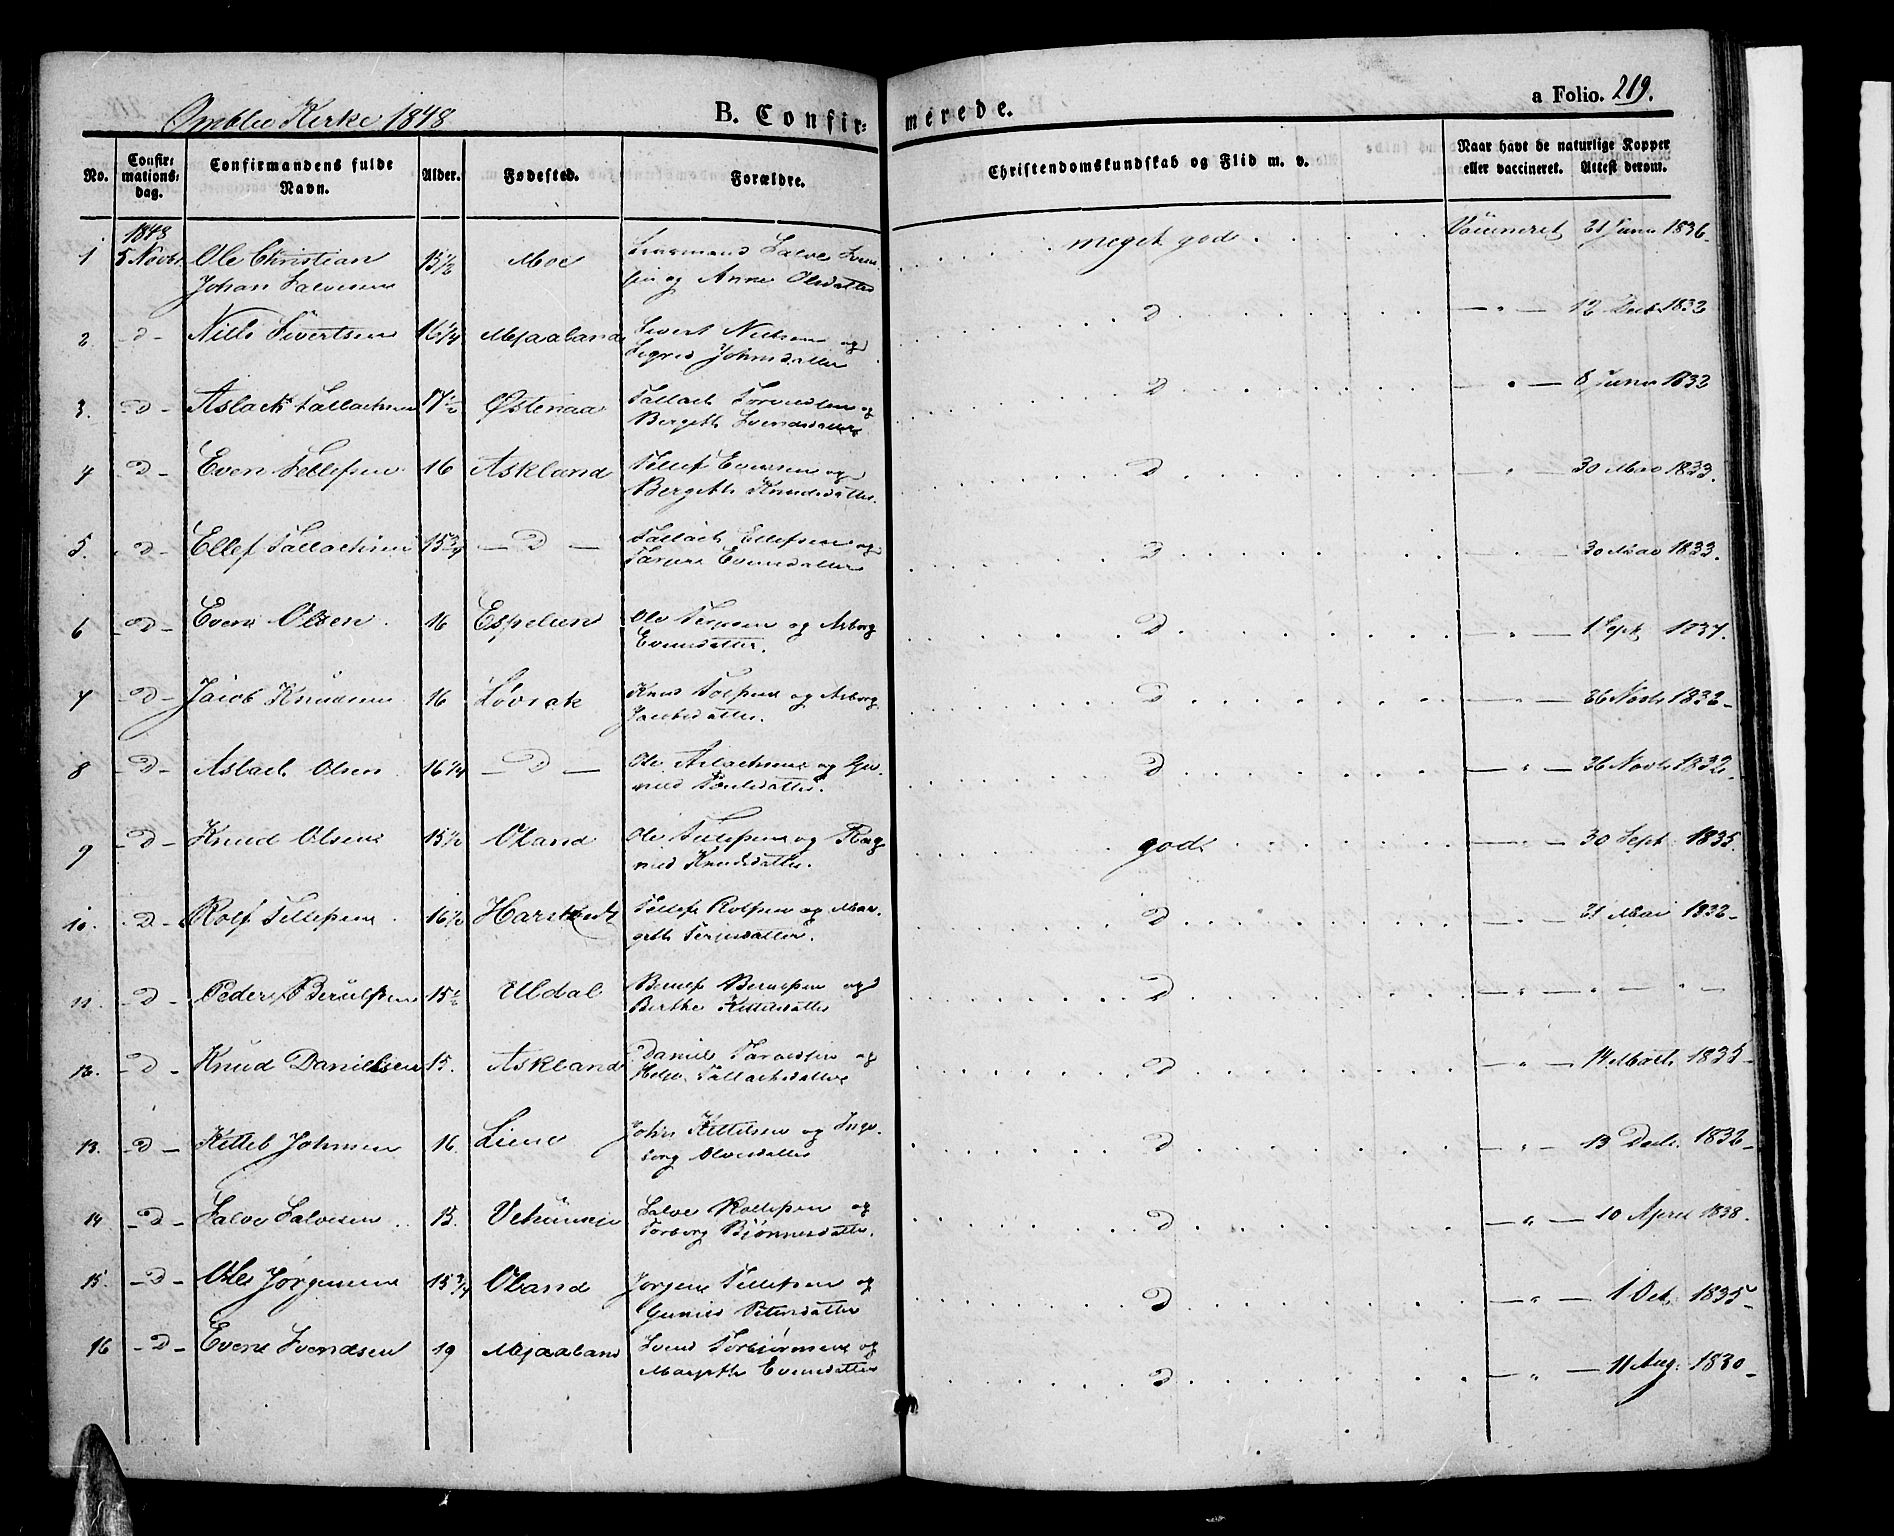 Omblie Kirke 1848
B. Confir=
merede.
a Folio. 219.
No.
Confir=
mations=
dag.
Confirmandens fulde
Navn.
Alder.
Fødested.
Forældre.
Christendomskundskab og Flid m. v.
Naar havt de naturlige Kopper
eller vaccineret. Attest derom.
1848
1 5 Novbr Ole Christian 15½ Moe Salve
Johan Salvesen og Anne Olsdatter
meget god Vaccineret 21 Juni 1836
2. -D- Niels Sivertsen 16¼ Mjaaland Sivert Nielsen og
Sigrid Johnsdatter
D — " — 12 Decbr 1832
3. -D- Aslach Tallachsen 17½ Østenaa Tallach og
Bergeth Svendsdatter
D — " — 8 Juni 1832
4 -D- Even Tellefsen 16 Askland Tellef Evensen og
Bergeth Knudsdatter.
D — " — 30 Mai 1833.
5. -D- Ellef Tallachsen 15¾ — D — Tallach Ellefsen og
Evensdatter
D — " — 30 Mai 1833.
6 -D- Even Olsen. 16 Espelund Ole Terjesen og Asborg
Evensdatter.
D — " — 1 Sept 1837.
7 -D- Jacob Knudsen 16 Løvrak Knud og Asborg
Jacobsdatter.
D — " — 26 Novbr 1832
8 -D- Aslach Olsen 16¼ — D — Ole Aslachsen og Gu=
nild
D — " — 26 Novbr 1832
9 -D- Knud Olsen 15½ Oland Ole Tellefsen og Rag=
nild Knudsdatter.
god — " — 30 Sept 1835.
10. -D- Rolf Tellefsen 16½ Tellef Rolfsen og Mar=
geth Terjesdatter.
D — " — 21 Mai 1832
11. -D- Peder Berulfsen 15½ Uldal Berulf Berulfsen og
Berthe Kittelsdatter
D — " — " — " —
12. -D- Knud Danielsen 15. Askland Daniel og
Helje Tallachsdatter
D — " — 1835
13. -D- Kittel Johnsen 16. Liene John Kittelsen og Inge=
borg Olvesdatter
D — " — 13 Decb. 1832
14 -D- Salve Salvesen 15. Salve og
Torborg Bjørnnesdatter.
D — " — 10 April 1838.
15. -D- Ole Jørgensen 15¾ Oland Jørgen Tellefsen og
Gunild
D — " — 1 Oct. 1835
16 -D- Even Svendsen 19 Mjaaland Svend Torbjørnsen og
Margeth Evensdatter
D — " — 11 Aug. 1830